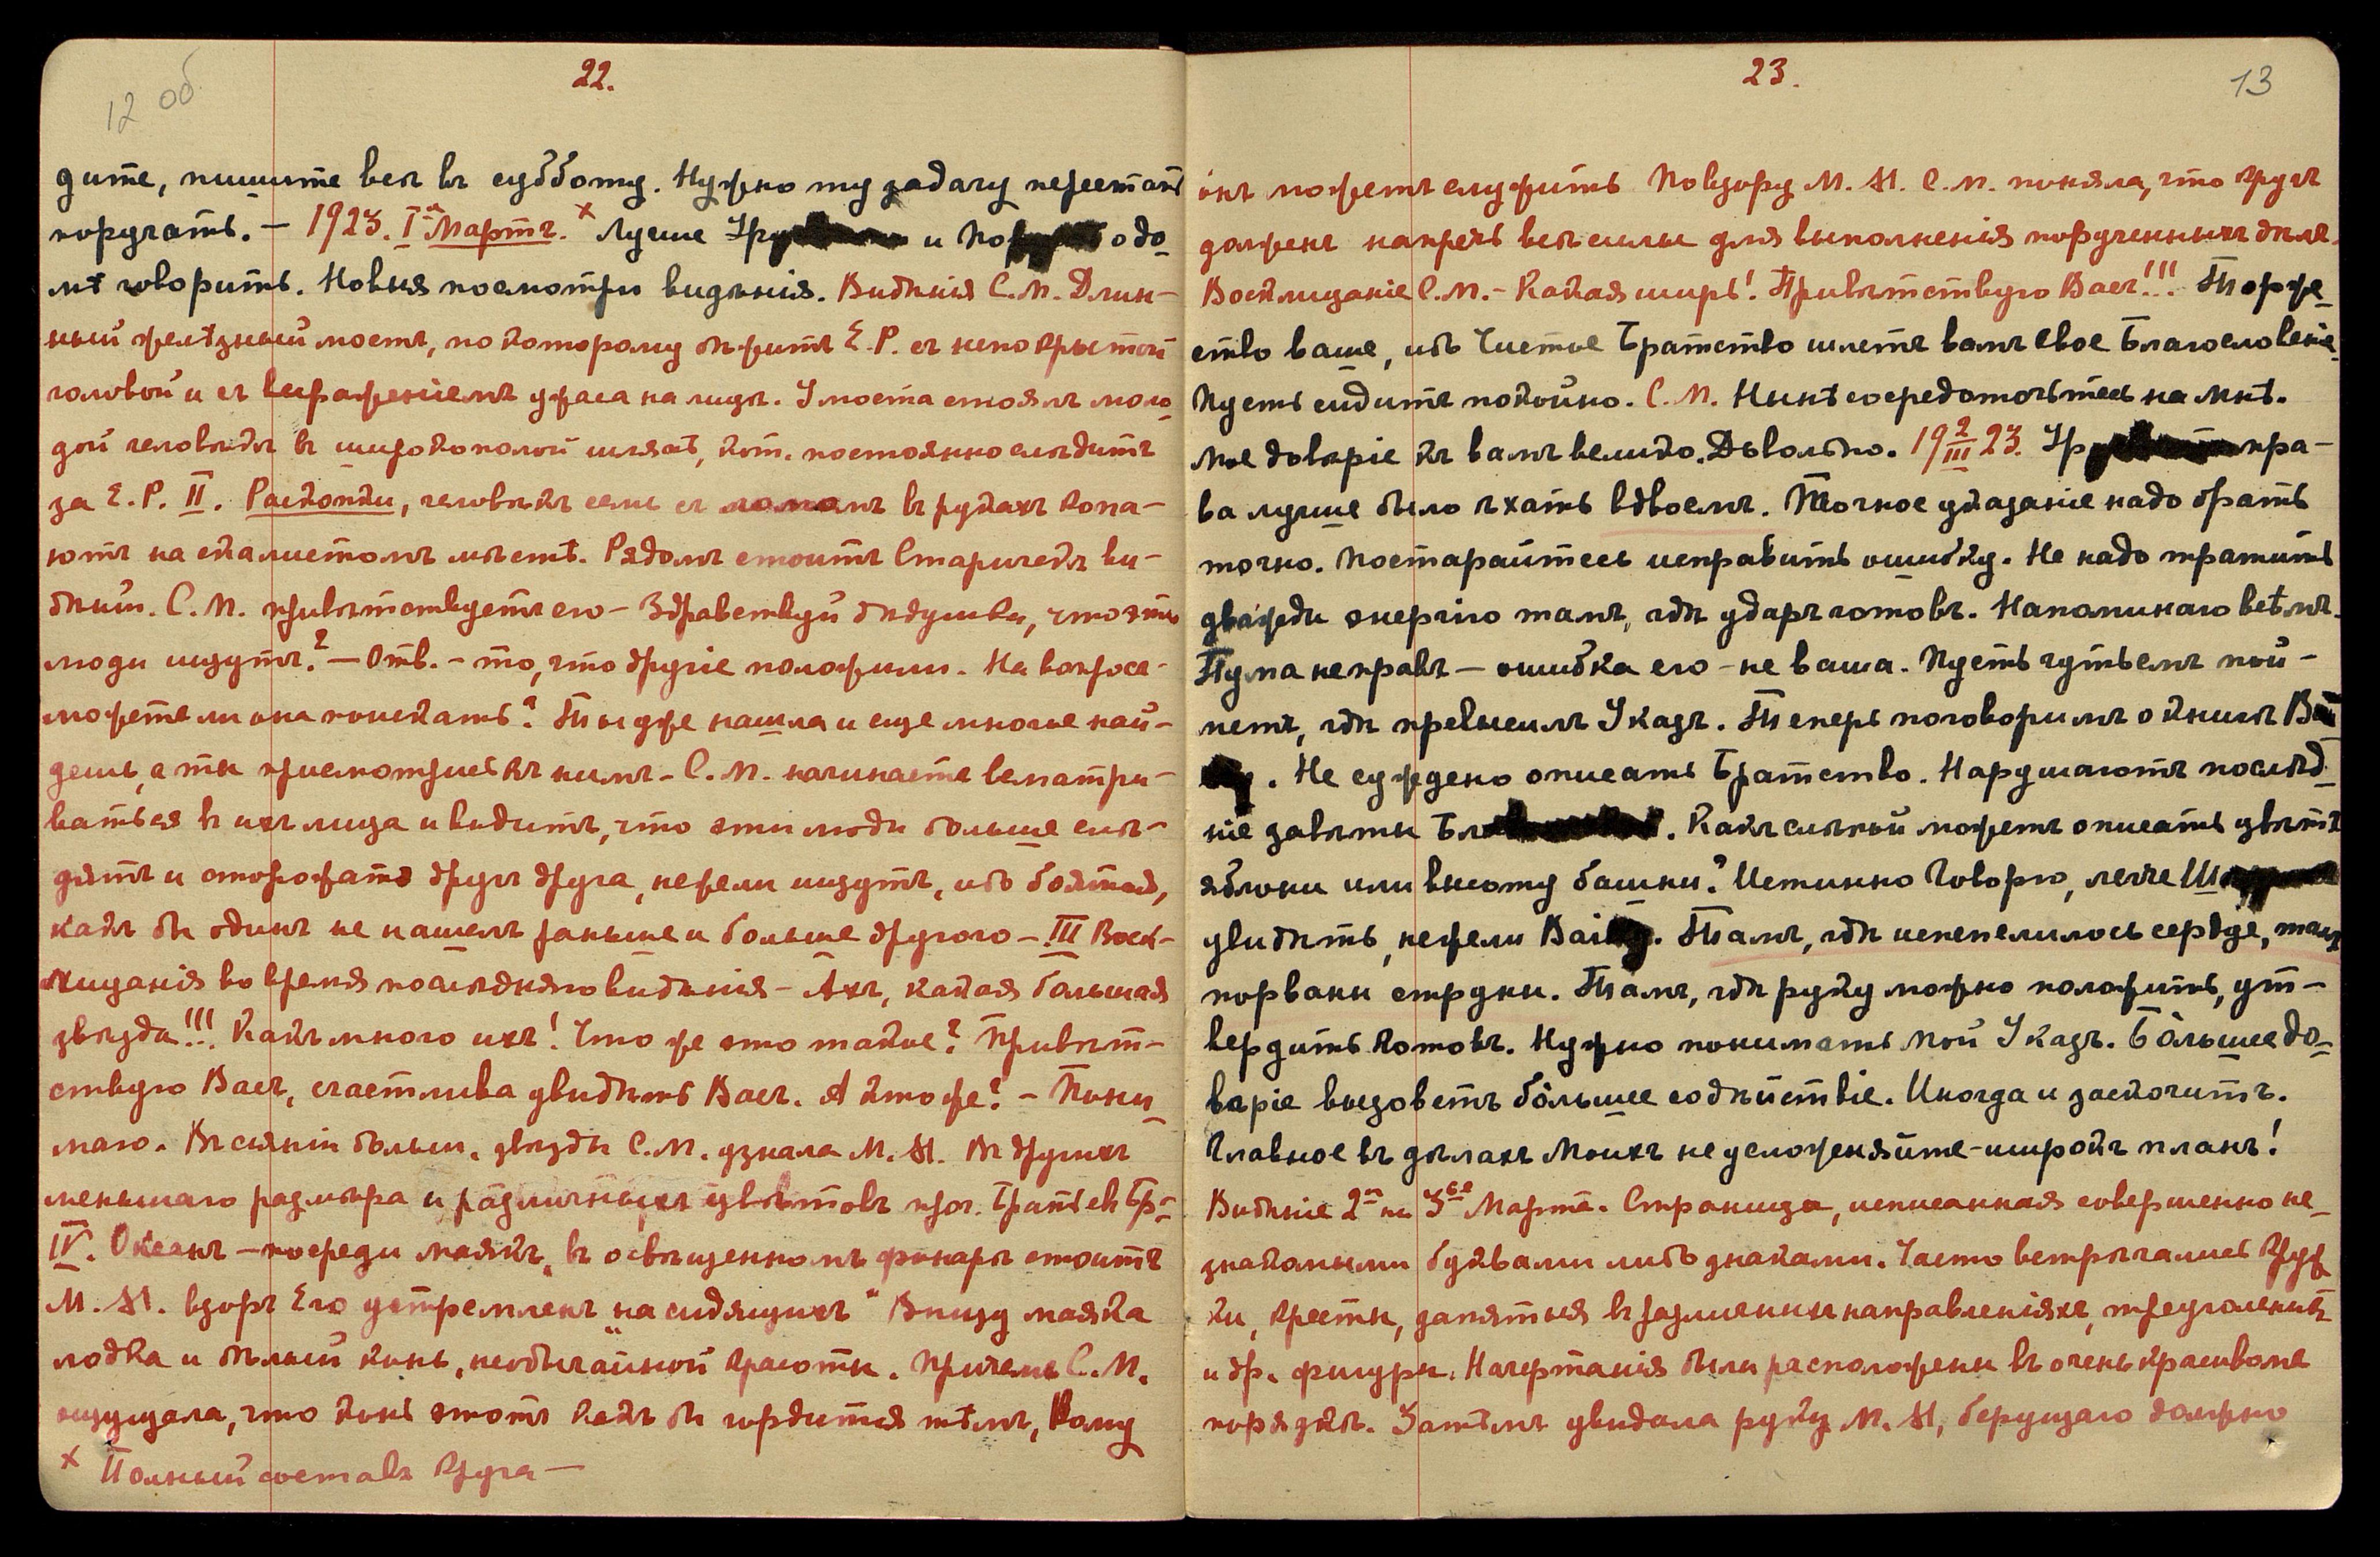 12 об
22.
дите, пишите все въ субботу. Нужно ту задачу перестать
поручать. – 1923. I Мартъ. х Лучше и о до-
мѣ говорить. Новыя посмотри видѣнія. Видѣнія С.М. Длин-
ный желѣзный мостъ, по которому бѣжитъ Е.Р. съ непокрытой
головой и съ выраженіемъ ужаса на лицѣ. У моста стоялъ моло-
дой человѣкъ въ широкополой шляпѣ, кот. постоянно слѣдитъ
за Е.Р. II. Раскопки, человѣкъ семь съ въ рукахъ копа-
ютъ на скалистомъ мѣстѣ. Рядомъ стоитъ Старичекъ ви-
С.М. привѣтствуетъ его – Здравствуй дѣдушка, что эти
люди ищутъ? – Отв. – то, что другіе положили. На вопросъ-
можетъ ли она поискать? Ты уже нашла и еще многое най-
дешь, а ты присмотрись къ нимъ – С.М. начинаетъ всматри-
ваться въ ихъ лица и видитъ, что эти люди больше слѣ-
дятъ и сторожатъ другъ друга, нежели ищутъ, ибо боятся,
какъ бы одинъ не нашелъ раньше и больше другого – III Воск-
лицанія во время послѣдняго видѣнія – Ахъ, какая большая
звѣзда!!! Какъ много ихъ! Что же это такое? Привѣт-
ствую Васъ, счастлива увидѣть Васъ. А кто же? – Пони-
маю. Въ сіяніи больш. звѣзды С.М. узнала М.Н. Въ другихъ
меньшаго размѣра и различныхъ цвѣтовъ проч. Братьевъ Бр-
IV. Океанъ – посреди маякъ, въ освѣщенномъ фонарѣ стоитъ
М.Н. взоръ Его устремленъ "на сидящихъ" Внизу маяка
лодка и бѣлый конь, необычайной красоты. Причемъ С.М.
ощущала, что конь этотъ какъ бы гордится тѣмъ, кому
х Полный составъ Круга –
23.
13
онъ можетъ служить По взору М.Н. С.М. поняла, что кругъ
долженъ напречь всѣ силы для выполненія порученныхъ дѣлъ.
Восклицаніе С.М. – Какая ширь! Привѣтствую Васъ!!! Торже-
ство ваше, ибо Чистое Братство шлетъ вамъ свое Благословеніе.
Пусть сидитъ покойно. С.М. Нынѣ сосредоточьтесь на Мнѣ.
Мое довѣріе къ вамъ велико. Довольно. 19 2/III 23. пра-
ва лучше было ѣхать вдвоемъ. Точное указаніе надо брать
точно. Постарайтесь исправить ошибку. Не надо тратить
дважды энергію тамъ, гдѣ ударъ готовъ. Напоминаю всѣмъ.
Пума неправъ – ошибка его – не ваша. Пусть чутьемъ пой-
метъ, гдѣ превысилъ Указъ. Теперь поговоримъ о книгѣ
Не суждено описать Братство. Нарушаютъ послѣд-
ніе завѣты Какъ слѣпой можетъ описать цвѣтъ
яблони или высоту башни? Истинно Говорю, легче
увидѣть, нежели Тамъ, гдѣ испепелилось сердце, тамъ
порваны струны. Тамъ, гдѣ руку можно положить, ут-
вердить готовъ. Нужно понимать Мой Указъ. Большее до-
вѣріе вызоветъ большее содѣйствіе. Иногда и заскочитъ.
Главное въ дѣлахъ Моихъ не усложняйте – широкъ планъ!
Видѣніе 2го на 3ье Марта. Страница, исписанная совершенно не-
знакомыми буквами либо знаками. Часто встрѣчались круж-
ки, кресты, запятыя въ различныхъ направленіяхъ, треугольники
и др. фигуры. Начертанія были расположены въ очень красивомъ
порядкѣ. Затѣмъ увидала руку М.Н, берущаго должно